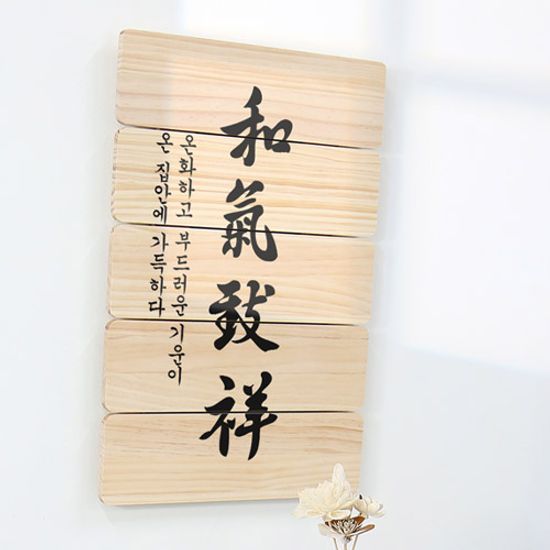 和氣致祥
온화하고 부드러운 기운이
온 집안에 가득하다